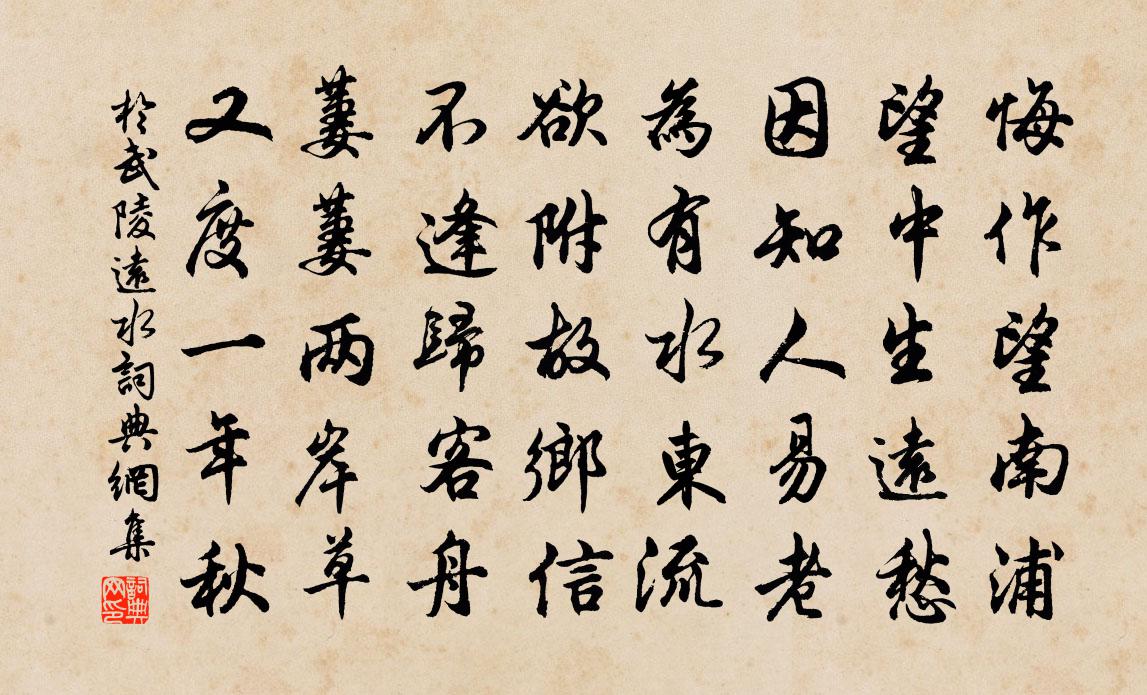 悔作望南浦
望中生遠愁
因知人易老
為有水東流
欲附故鄉信
不逢歸客舟
萋萋两岸草
又度一年秋
於武陵遠水詞典網集
詞典
网印